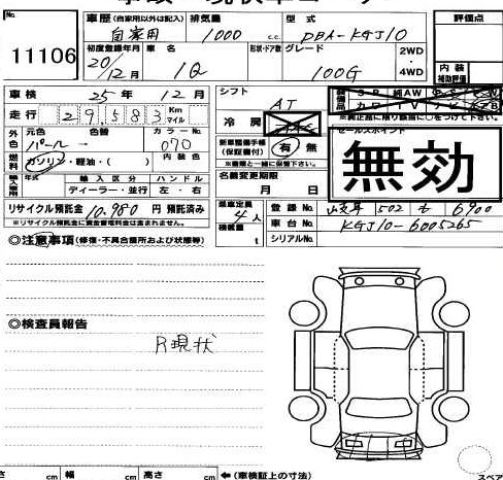 No.
11106
車歴(自家用以外は記入) 自家用
排気量 1000 c.c.
型式 DBA-KGJ10
評価点
初度登録年月 20/12月
車名 iQ
形状・ドア数 グレード 100G
2WD
4WD
内装
補助評価
車検 25年 12月
シフト AT
走行 29,583 Km マイル
冷房
外色 元色 パール 色替
カラーNo. 070
内装色
燃料 ガソリン・軽油・( )
新車整備手帳(保証書付) 有 無
※書類と一緒に保管下さい。
セールスポイント
無効
年式
輸入区分 ディーラー・並行
ハンドル 左・右
名義変更期限
月 日
リサイクル預託金 10,980円 預託済み
※リサイクル預託金に資金管理料金は含まれません。
乗車定員 4人
積載量 t
登録No. 502 6900
車台No. KGJ10-6005265
シリアルNo.
◎注意事項(修復・不具合箇所および状態等)
◎検査員報告
R現状
さ cm 幅 cm 高さ cm ←(車検証上の寸法)
スペア